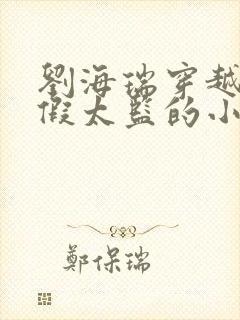 劉海瑞穿越
假太監的小
鄭保瑞